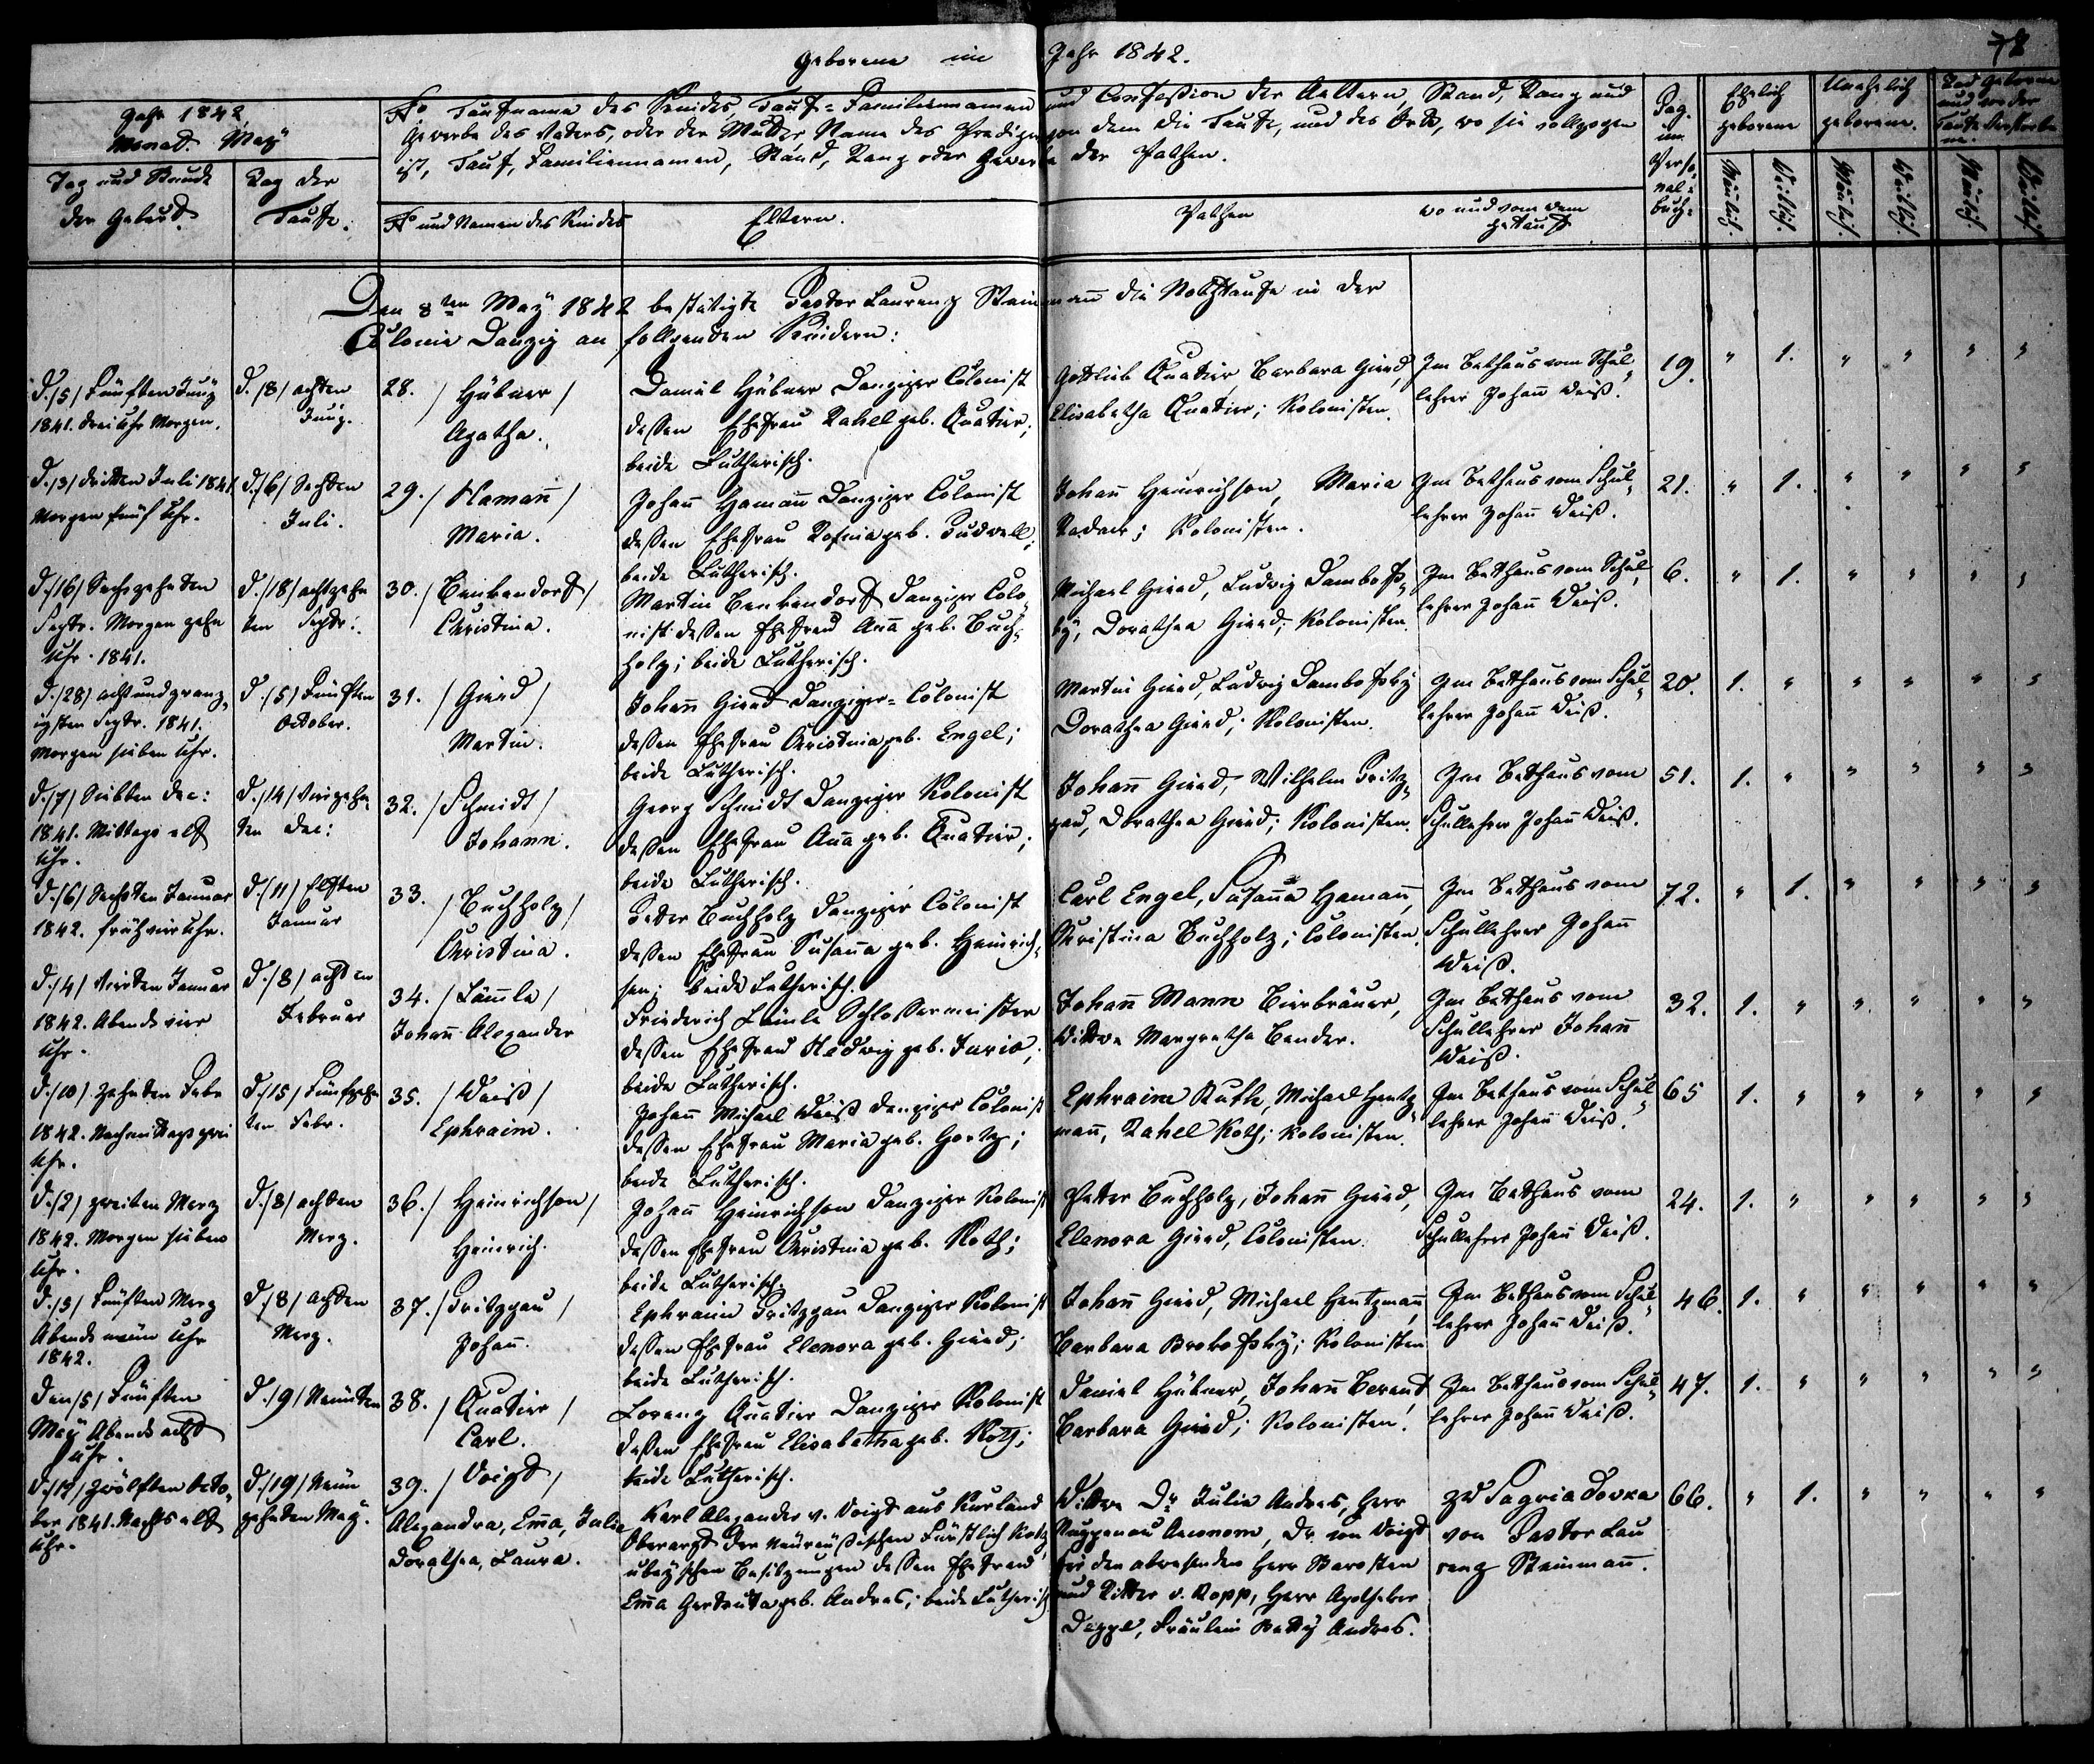 Geborene im Jahr 1842.
78
Jahr 1842,
Monat May
No Taufname des Kindes, Tauf- Familiennamen und Confeßion der Aeltern, Stand, Rang und
Gewerbe des Vaters, oder der Mutter, Name des Predigers von dem die Taufe, und des Orts, wo sie vollzogen
ist, Tauf, Familiennamen, Stand, Rang oder Gewerbe der Pathen.
Pag.
im
Perso,
nal=
buch=
Ehelich
geborene
Unehelich
geborene.
Todgeborene
und vor der
Taufe Verstorbe
ne.
Tag und Stunde
der Geburt.
Tag der
Taufe.
No und Namen des Kindes
Eltern.
Pathen
wo und von wem
getauft
Mänlich.
Weiblich.
Mänlich.
Weiblich.
Mänlich.
Weiblich.
Den 8ten May 1842 bestätigte Pastor Laurenz Steinmann die Nothtaufe in der
Colonie Danzig an folgenden Kindern:
D. /5/ Fünften Juny
1841. drei Uhr Morgen.
D. /8/ achten
Juny.
28. / Hübner /
Agatha.
Daniel Hübner Danziger Colonist
dessen Ehefrau Rahel geb. Quatier;
beide Lutherisch.
Gottlieb Quatier, Barbara Gierd,
Elisabetha Quatier; Kolonisten.
Im Bethaus vom Schul-
lehrer Johann Weiß.
19. " 1. " " " "
D. /3/ dritten Juli 1841
Morgen fünf Uhr.
D. /6/ Sechsten
Juli.
29. / Hamann /
Maria.
Johann Hamann Danziger Colonist
dessen Ehefrau Rosina geb. Budwell;
beide Lutherisch.
Johann Heinrichson, Maria
Radack; Kolonisten.
Im Bethaus vom Schul-
lehrer Johann Weiß.
21. " 1. " " " "
D. /16/ Sechszehnten
Septr. Morgen zehn
Uhr. 1841.
D. /18/ achtzehn
ten Septr:
30. / Benkendorf /
Christina.
Martin Benkendorf Danziger Colo,
nist dessen Ehefrau Anna geb. Buch-
holz; beide Lutherisch.
Michael Gierd, Ludwig Dombofs,
ky, Dorathea Gierd; Kolonisten.
Im Bethaus vom Schul-
lehrer Johann Weiß.
6. " 1. " " " "
D. /28/ achtundzwanz,
igsten Septr. 1841.
Morgen sieben Uhr.
D. /5/ Fünften
October.
31. / Gierd /
Martin.
Johann Gierd Danziger= Colonist
dessen Ehefrau Christina geb. Engel;
beide Lutherisch.
Martin Gierd, Ludwig Dombofsky
Dorathea Gierd; Kolonisten.
Im Bethaus vom Schul-
lehrer Johann Weiß.
20. 1. " " " " "
D. /7/ Siebten Dec:
1841. Mittags elf
Uhr.
D. /14/ Vierzehn
ten Dec:
32. / Schmidt /
Johann.
Georg Schmidt Danziger Kolonist
dessen Ehefrau Anna geb. Quatier;
beide Lutherisch.
Johann Gierd, Wilhelm Pritz,
gau, Dorathea Gierd; Kolonisten.
Im Bethaus vom
Schullehrer Johann Weiß.
51. 1. " " " " "
D. /6/ Sechsten Januar
1842. früh vier Uhr.
D. /11/ Elften
Januar
33. / Buchholz /
Christina.
Petter Buchholz Danziger Colonist
dessen Ehefrau Susanna geb. Heinrich-
sen; beide Lutherisch.
Carl Engel, Susanna Hamann,
Christina Buchholz; Colonisten.
Im Bethaus vom
Schullehrer Johann
Weiß.
72. " 1. " " " "
D. /4/ Vierten Januar
1842. Abends vier
Uhr.
D. /8/ achten
Februar
34. / Lämle /
Johann Alexander
Friederich Lämle Schlossermeister
dessen Ehefrau Hedwig geb. Juris;
beide Lutherisch.
Johann Mann Bierbräuer,
Wittwe Margretha Bender.
Im Bethaus vom
Schullehrer Johann
Weiß.
32. 1. " " " " "
D. /10/ Zehnten Febr
1842. Nachmittags zwei
Uhr.
D. /15/ Fünfzehn
ten Febr.
35. / Weiß /
Ephraim.
Johann Michael Weiß Danziger Colonist
dessen Ehefrau Maria geb. Gortz;
beide Lutherisch.
Ephraim Ruth, Michael Hentz,
mann, Rahel Roth; Kolonisten.
Im Bethaus vom Schul-
lehrer Johann Weiß.
65 1. " " " " "
D. /2/ zweiten Merz
1842. Morgen sieben
Uhr.
D. /8/ achten
Merz.
36. / Heinrichson /
Heinrich.
Johann Heinrichson Danziger Kolonist
dessen Ehefrau Christina geb. Roth;
beide Lutherisch.
Petter Buchholz, Johann Gierd,
Elenora Gierd, Colonisten.
Im Bethaus vom
Schullehrer Johann Weiß.
24. 1. " " " " "
D. /5/ Fünften Merz
Abends neün Uhr
1842.
D. /8/ achten
Merz.
37. / Pritzgau /
Johann.
Ephraim Pritzgau Danziger Kolonist
dessen Ehefrau Elenora geb. Gierd;
beide Lutherisch.
Johann Gierd, Michael Hentzmann,
Barbara Brokofsky; Kolonisten
Im Bethaus vom Schul-
lehrer Johann Weiß.
46. 1. " " " " "
Den /5/ Fünften
May Abends acht
Uhr.
D. /9/ Neünten
38. / Quatier /
Carl.
Lorenz Quatier Danziger Kolonist
dessen Ehefrau Elisabetha geb. Roth;
beide Lutherisch.
Daniel Hübner, Johann Berend,
Barbara Gierd; Kolonisten.
Im Bethaus vom Schul-
lehrer Johann Weiß.
47. 1. " " " " "
D. /12/ Zwölften Octo,
ber 1841. Nachts elf
Uhr.
D. /19/ Neün
zehnten May.
39. / Voigt /
Alexandra, Emma, Julia
Dorathea, Laura.
Karl Alexander v. Voigt aus Kurland
Oberarzt der Neurußischen Fürstlich Kotz,
ubeyschen Besitzungen dessen Ehefrau
Emma Gertruta geb. Andres; beide Lutherisch.
Wittwe Dr Julie Andres, Herr
Aeconom, Dr. von Voigt
für den abwesenden Herr
und Ritter v. Ropp, Herr Apotheker
Deppe, Fräulein Betty Andres.
zu Sagriadovka
von Pastor Lau
renz Steinmann.
66. " 1. " " " "